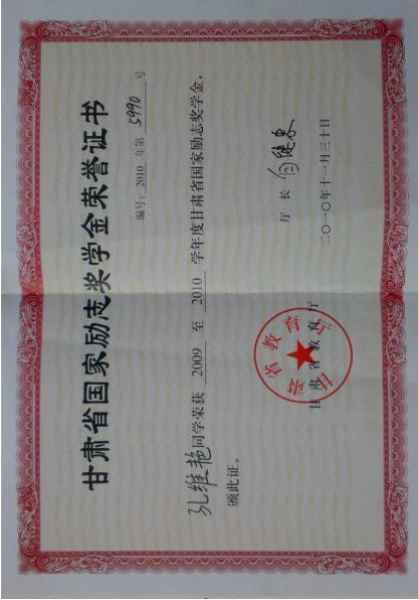 甘肃省国家励志奖学金荣誉证书
编号：2010 年第 5990 号
孔维艳同学荣获 2009 至 2010 学年度甘肃省国家励志奖学金，
颁此证。
厅长 白继忠
甘肃省教育厅
二〇一〇年十一月三十日